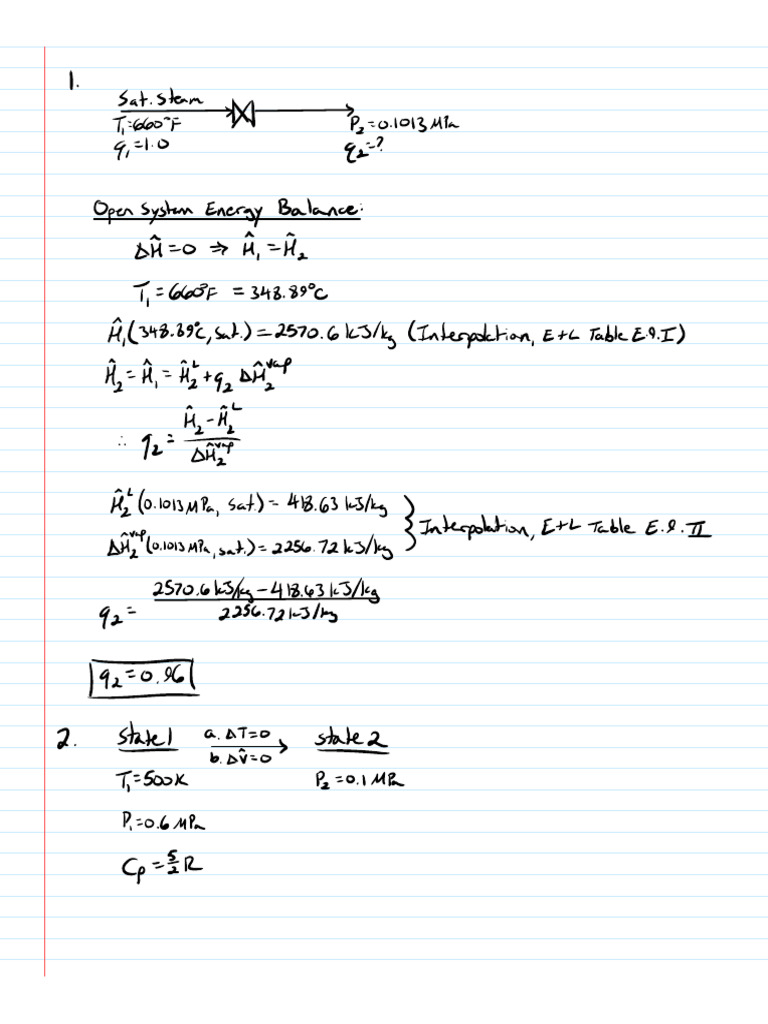 1.
Sat. Steam
T₁=660°F
q₁=1.0
P₂=0.1013 MPa
q₂=?
Open System Energy Balance:
ΔĤ=0 ⇒ Ĥ₁=Ĥ₂
T₁=660°F = 348.89°C
Ĥ₁(348.89°C, sat.)=2570.6 kJ/kg (Interpolation, E+L Table E.8.I)
Ĥ₂=Ĥ₁=Ĥ₂ᴸ+q₂ΔĤ₂ᵛᵃᵖ
∴ q₂=(Ĥ₂-Ĥ₂ᴸ)/ΔĤ₂ᵛᵃᵖ
Ĥ₂ᴸ(0.1013 MPa, sat.)=418.63 kJ/kg
ΔĤ₂ᵛᵃᵖ(0.1013 MPa, sat.)=2256.72 kJ/kg
} Interpolation, E+L Table E.8.II
q₂=(2570.6 kJ/kg-418.63 kJ/kg)/(2256.72 kJ/kg)
q₂=0.96
2.
State 1
a. ΔT=0
b. ΔV̂=0
State 2
T₁=500K
P₂=0.1 MPa
P₁=0.6 MPa
Cp=5/2 R